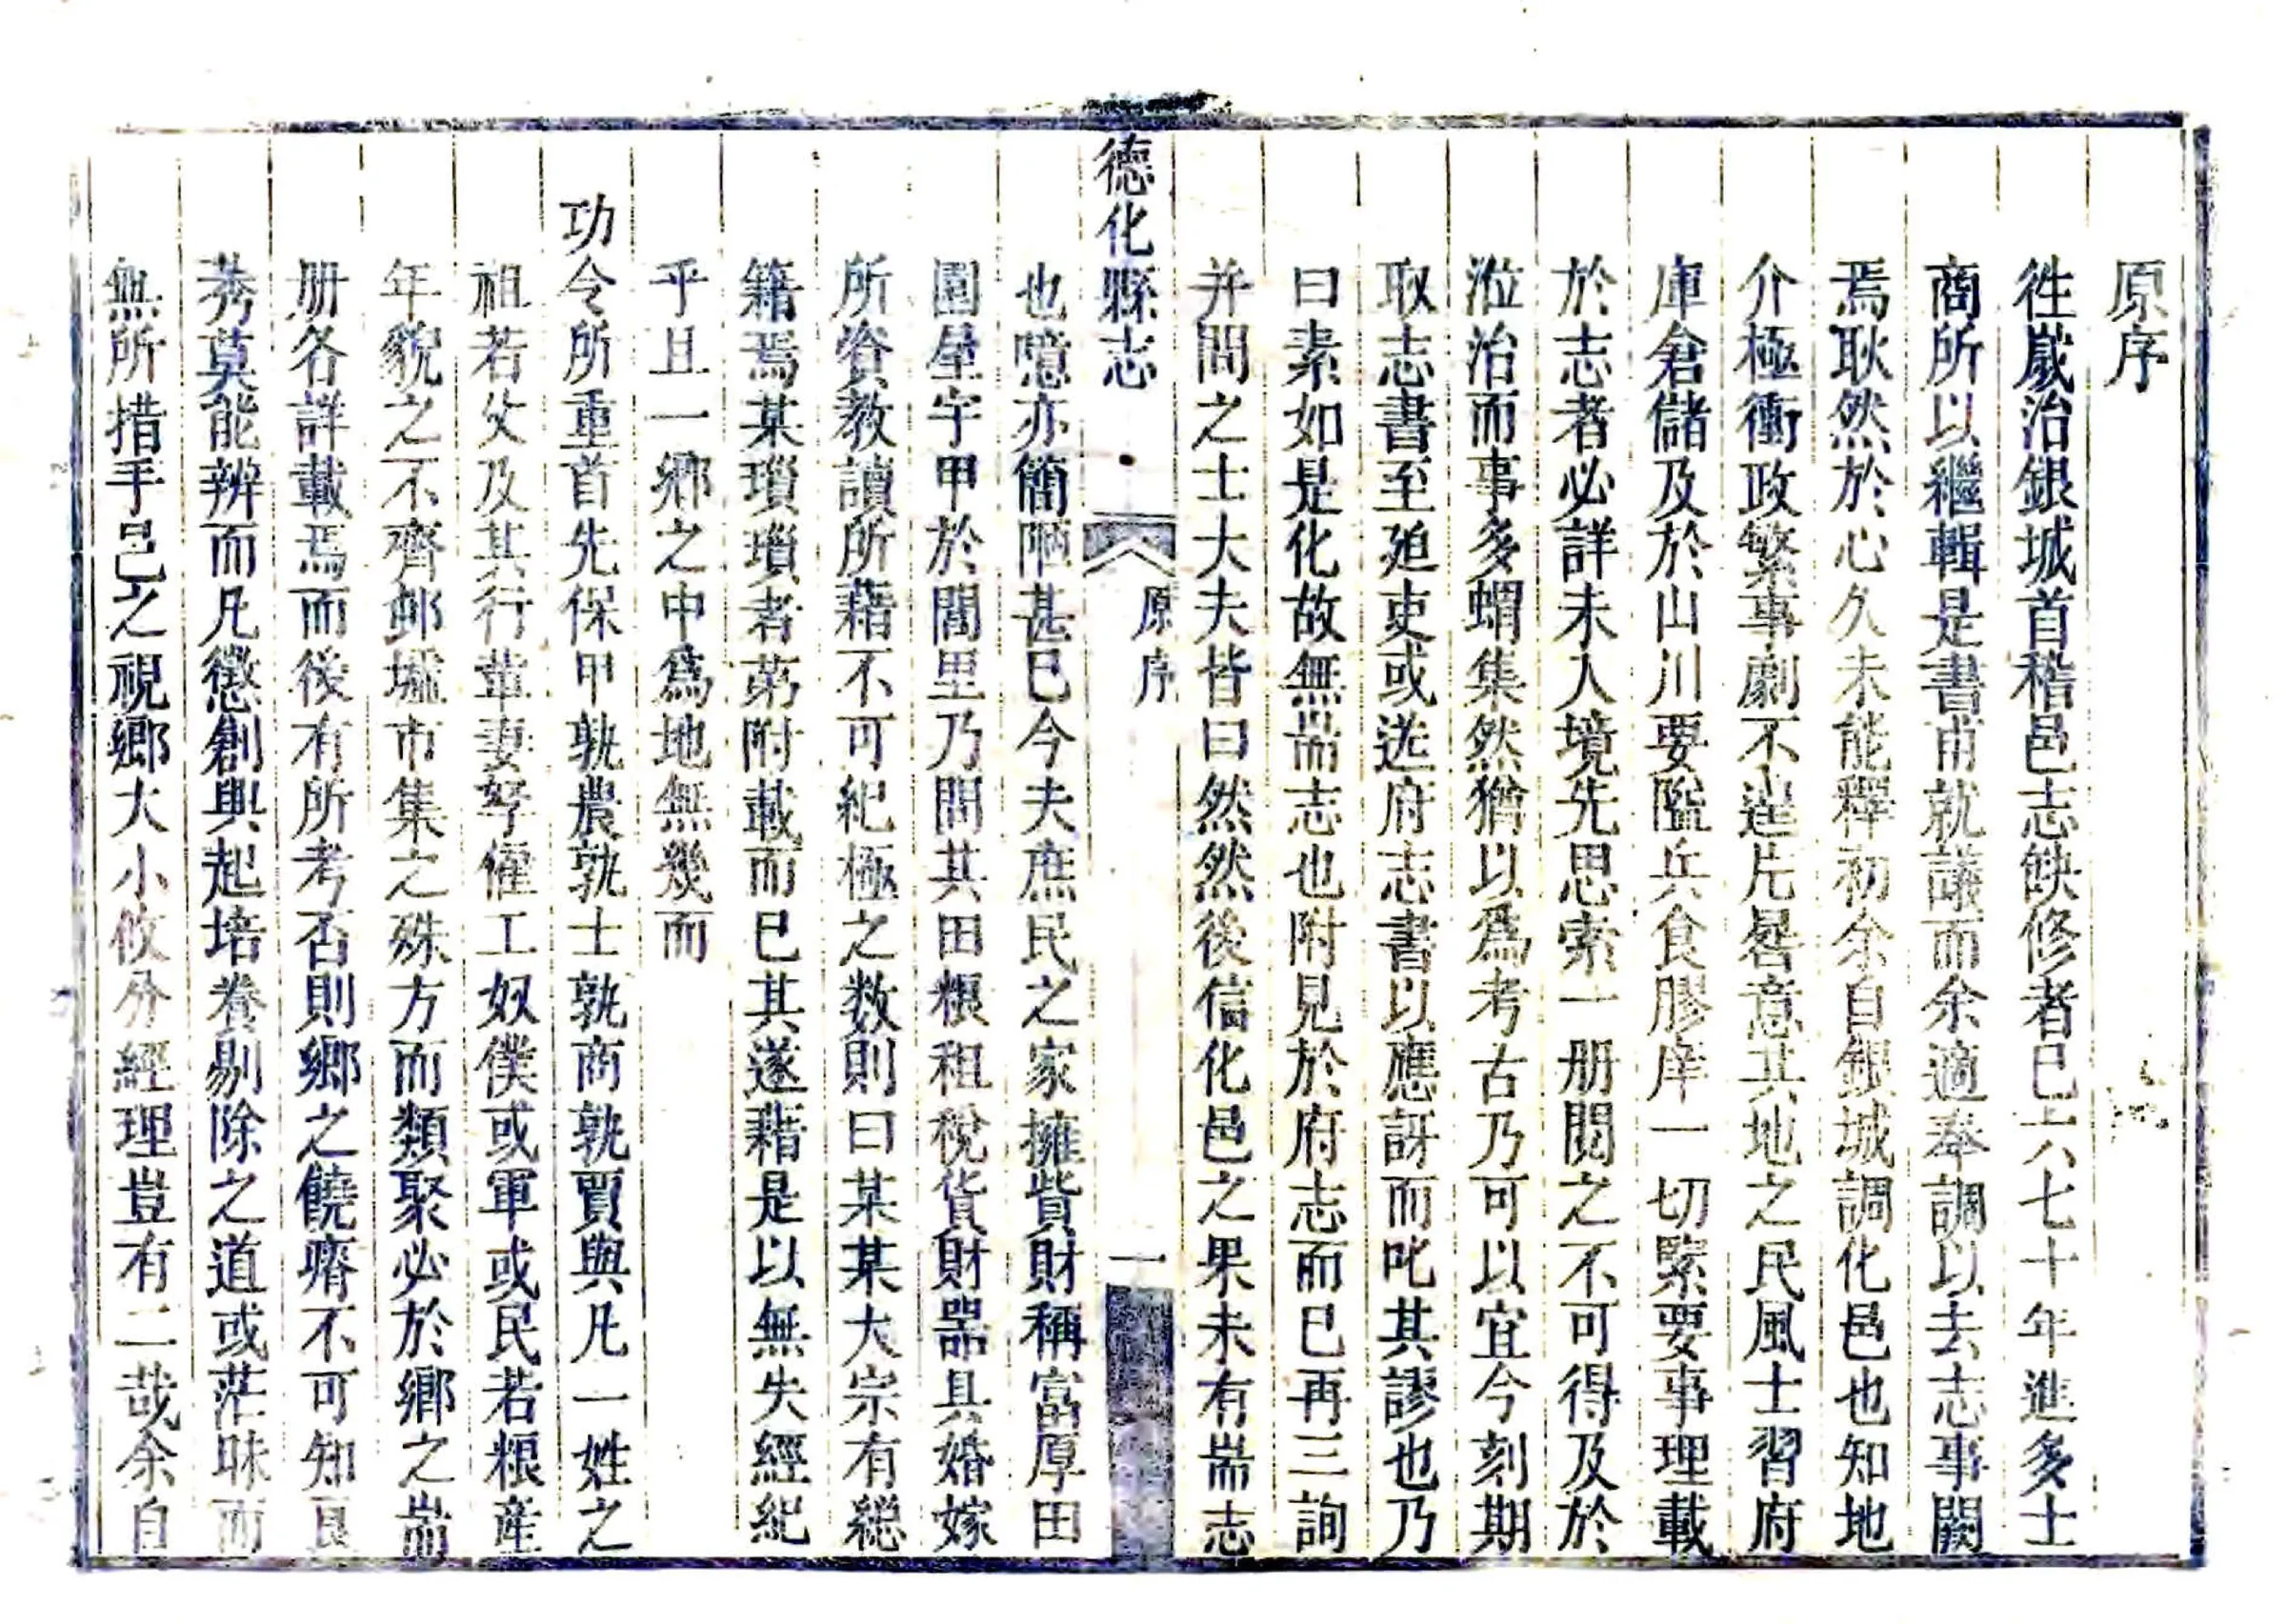 原序
徃歲治銀城首稽邑志缺修者已六七十年進多士
商所以繼輯是書甫就議而余適奉調以去志事闕
焉耿然於心久未能釋初余自銀城調化邑也知地
介極衝政繁事劇不遑片晷意其地之民風士習府
庫倉儲及於山川要隘兵食膠庠一切緊要事理載
於志者必詳未入境先思索一册閱之不可得及於
涖治而事多蝟集然猶以為考古乃可以宜今刻期
取志書至廹吏或迯府志書以應訝而叱其謬也乃
曰素如是化故無耑志也附見於府志而已再三詢
并問之士大夫皆曰然然後信化邑之果未有耑志
德化縣志 原序 一
也噫亦簡陋甚已今夫庶民之家擁貲財稱富厚田
園屋宇甲於閭里乃問其田粮租稅貨財噐具婚嫁
所資教讀所藉不可紀極之数則曰某某大宗有總
籍焉某瑣瑣者苐附載而已其遂藉是以無失經紀
乎且一鄉之中為地無幾而
功令所重首先保甲孰農孰士孰商孰賈與凡一姓之
祖若父及其行輩妻孥傭工奴僕或軍或民若粮産
年貌之不齊邮墟市集之殊方而類聚必於鄉之耑
册各詳載焉而後有所考否則鄉之饒瘠不可知良
莠莫能辨而凡懲創與起培養剔除之道或茫昧而
無所措手邑之視鄉大小攸分經理豈有二哉余自